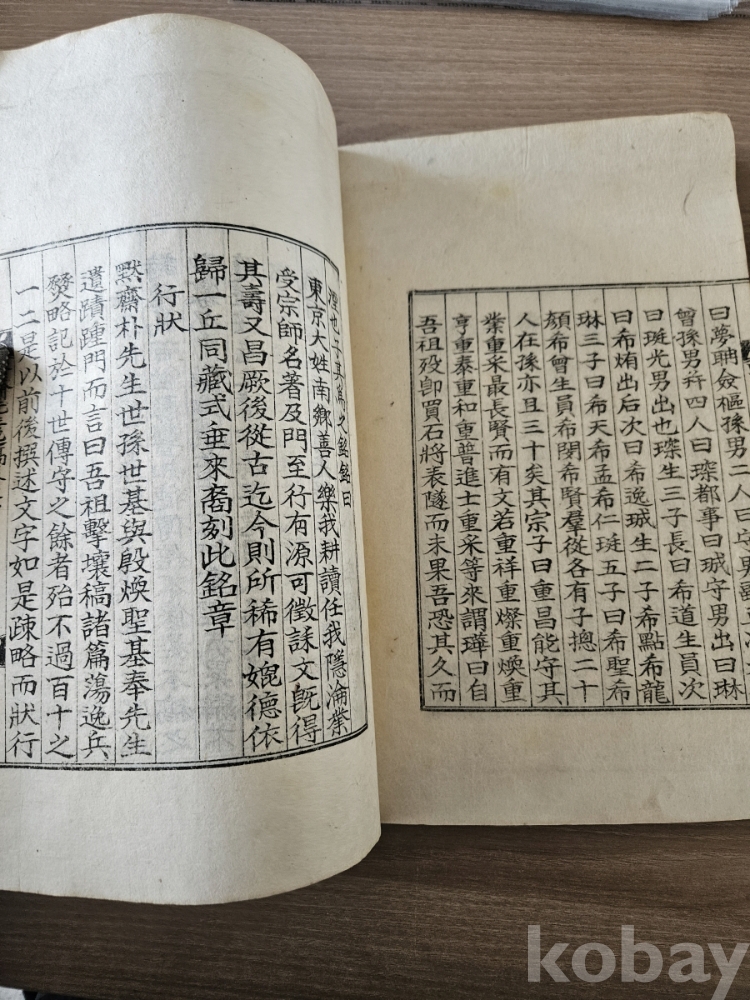 曰夢聃僉樞孫男二人曰守男
曾孫男幷四人曰琛都事曰珹守男出曰琳
曰珽光男出也琛生三子長曰希道生員次
曰希烠出后次曰希逸珹生二子希點希龍
琳三子曰希天希孟希仁珽五子曰希聖希
顔希曾生員希閔希賢羣從各有子摠二十
人在孫亦且三十矣其宗子曰重昌能守其
業重采最長賢而有文若重祥重燦重煥重
亨重泰重和重普進士重采等來謂瑋曰自
吾祖歿卽買石將表隧而未果吾恐其久而
湮也子其爲之銘銘曰
東京大姓南鄕善人樂我耕讀任我隱淪業
受宗師名著及門至行有源可徵誄文旣得
其壽又昌厥後從古迄今則所稀有婉德依
歸一丘同藏式垂來裔刻此銘章
行狀
默齋朴先生世孫世基與殷煥聖基奉先生
遺蹟踵門而言曰吾祖擊壤稿諸篇蕩逸兵
燹略記於十世傳守之餘者殆不過百十之
一二是以前後撰述文字如是疎略而狀行
kobay